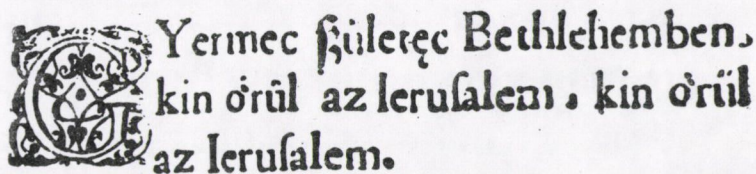 GYermec ſzületęc Bethlehemben,
kin oͤruͤl az Ieruſalem, kin oͤruͤl
az Ieruſalem.